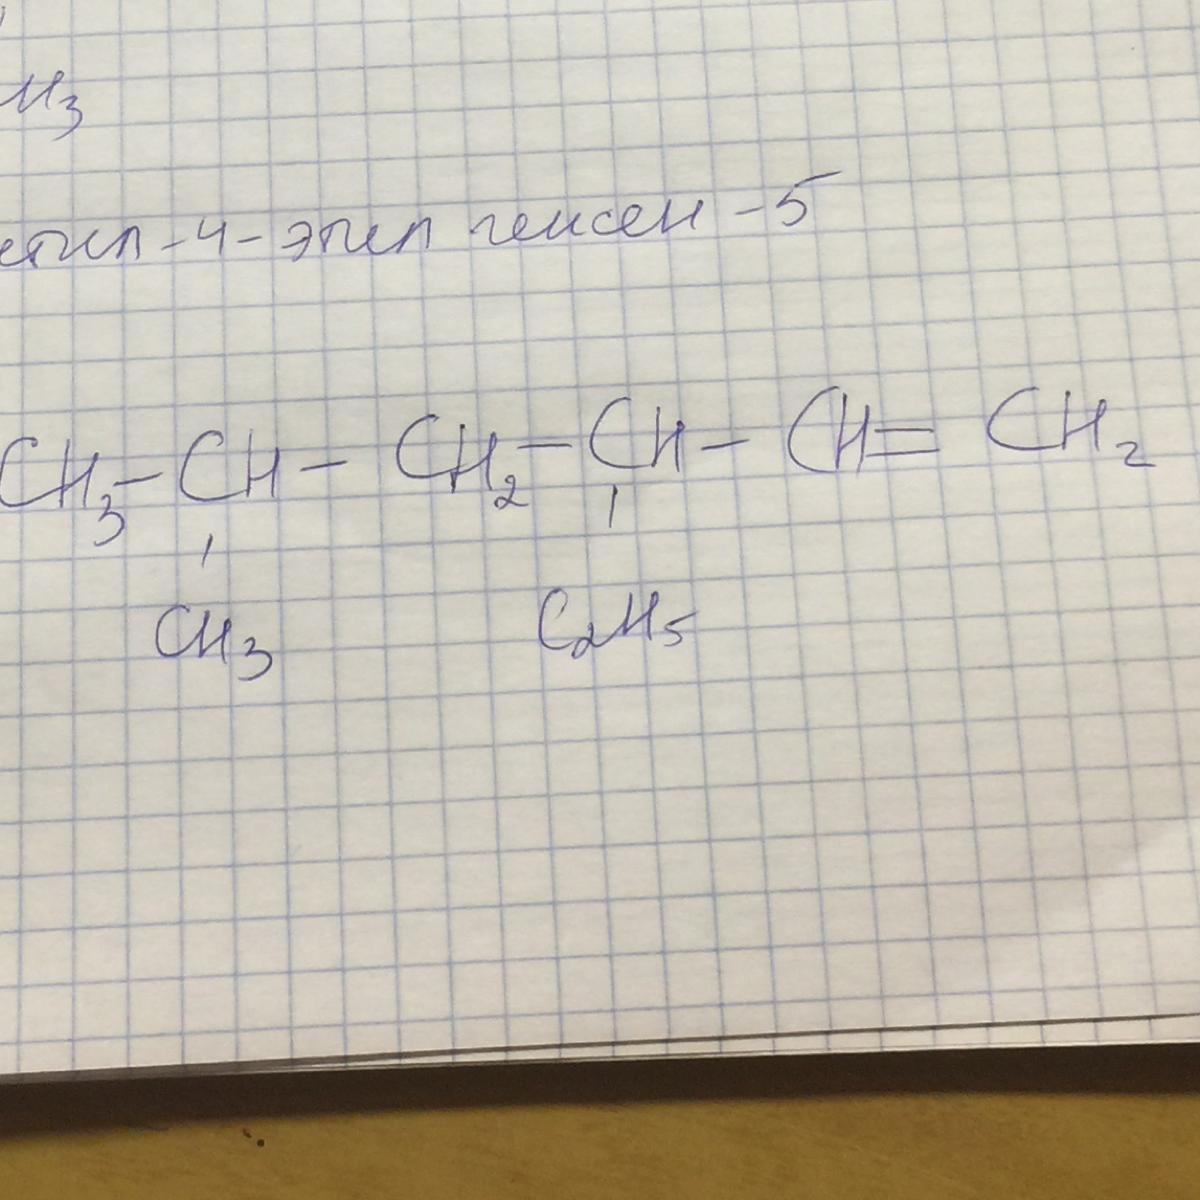 H3
етил-4-этил гексен-5
CH3-CH-CH2-CH-CH=CH2
CH3 C2H5